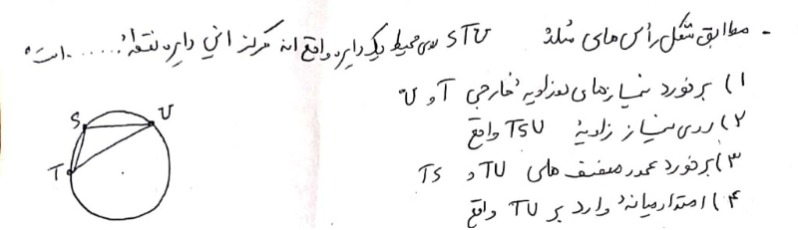 - مطابق شکل رأس های مثلث STU روی محیط یک دایره واقع اند مرکز این دایره نقطهٔ ..... است.
۱) برخورد نیمسازهای دو زاویهٔ خارجی T و U
۲) روی نیمساز زاویهٔ TSU واقع
۳) برخورد عمود منصف های TU و TS
۴) امتداد میانهٔ وارد بر TU واقع
S
U
T